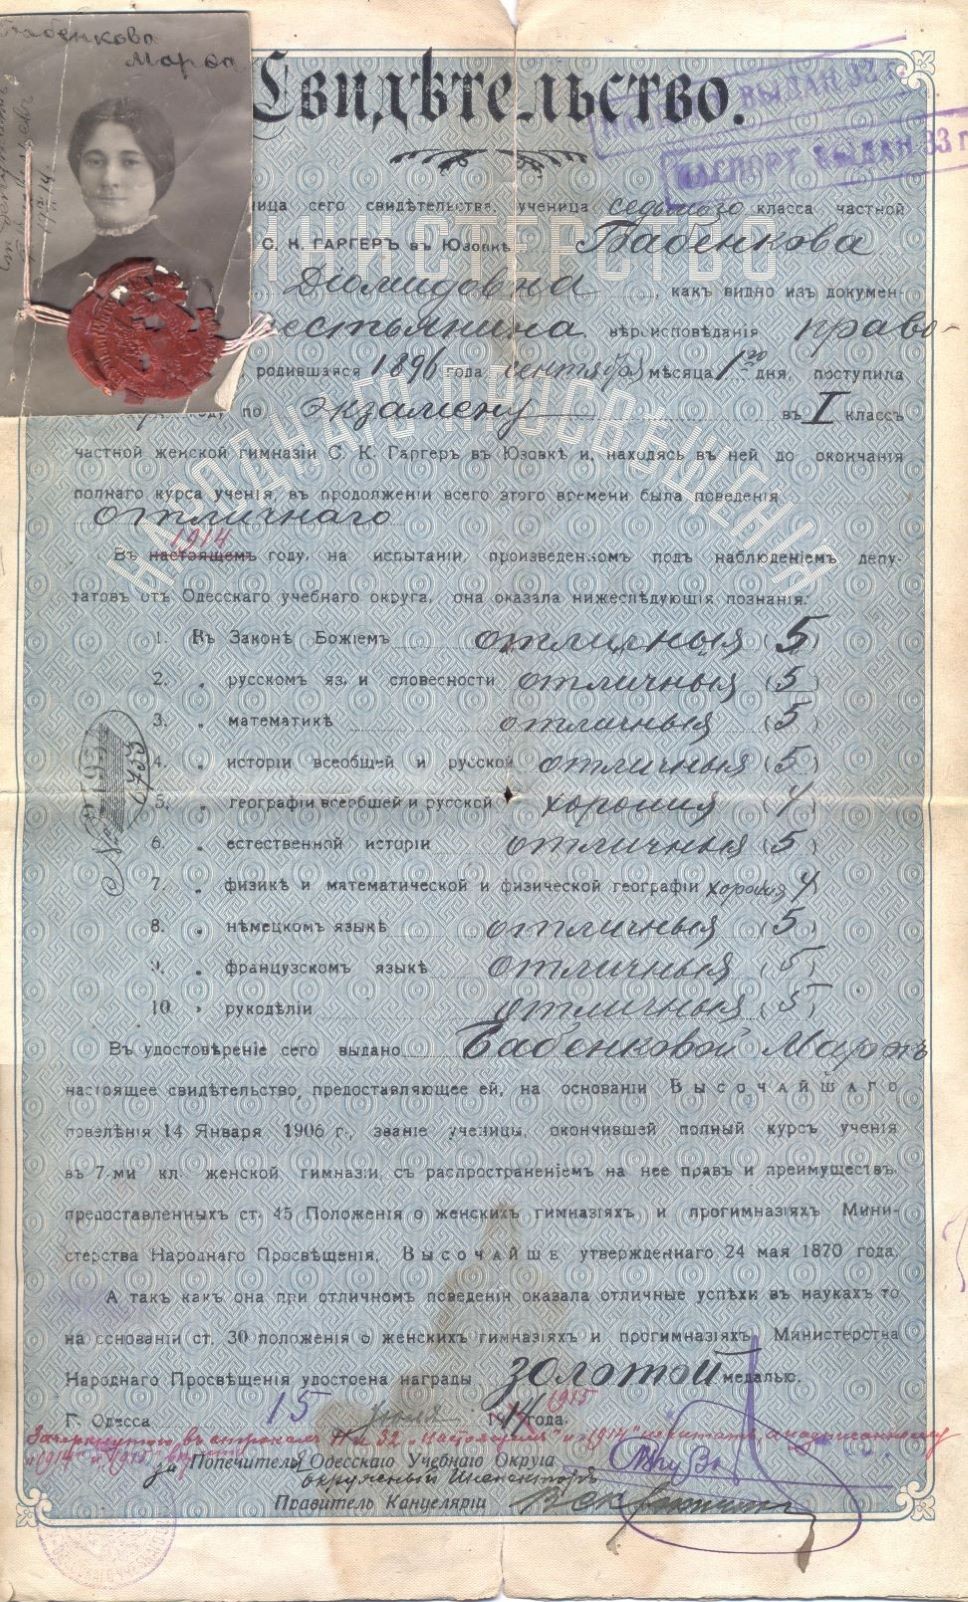 Бабенкова
Мария
Свидѣтельство.
ВЫДАН 32 г.
ПАСПОРТ ВЫДАН 33 г
МИНИСТЕРСТВО
НАРОДНАГО ПРОСВѢЩЕНІЯ
ница сего свидѣтельства, ученица седьмого класса частной
С. К. ГАРГЕРЪ въ Юзовкѣ Бабенкова
Діомидовна, какъ видно изъ докумен-
естьянина вѣроисповѣданія право-
родившаяся 1896 года сентября мѣсяца 1го дня, поступила
году по экзамену въ I классъ
частной женской гимназіи С. К. Гаргеръ въ Юзовкѣ и, находясь въ ней до окончанія
полнаго курса ученія, въ продолженіи всего этого времени была поведенія
отличнаго
1914
Въ настоящемъ году, на испытаніи, произведенномъ подъ наблюденіемъ депу-
татовъ отъ Одесскаго учебнаго округа, она оказала нижеслѣдующія познанія:
1. Въ Законѣ Божіемъ отличныя (5)
2. „ русскомъ яз. и словесности отличныя (5)
3. „ математикѣ отличныя (5)
4. „ исторіи всеобщей и русской отличныя (5)
5. „ географіи всеобщей и русской хорошія (4)
6. „ естественной исторіи отличныя (5)
7. „ физикѣ и математической и физической географіи хорошія 4)
8. „ нѣмецкомъ языкѣ отличныя (5)
9. „ французскомъ языкѣ отличныя (5)
10 „ рукодѣліи отличныя (5)
Въ удостовѣреніе сего выдано Бабенковой Маріи
настоящее свидѣтельство, предоставляющее ей, на основаніи ВЫСОЧАЙШАГО
повелѣнія 14 Января 1906 г., званіе ученицы, окончившей полный курсъ ученія
въ 7-ми кл. женской гимназіи, съ распространеніемъ на нее правъ и преимуществъ,
предоставленныхъ ст. 45 Положенія о женскихъ гимназіяхъ и прогимназіяхъ Мини-
стерства Народнаго Просвѣщенія, ВЫСОЧАЙШЕ утвержденнаго 24 мая 1870 года.
А такъ какъ она при отличномъ поведеніи оказала отличные успѣхи въ наукахъ то
на основаніи ст. 30 положенія о женскихъ гимназіяхъ и прогимназіяхъ Министерства
Народнаго Просвѣщенія удостоена награды золотой медалью.
1915
Г. Одесса 15 1914 года.
Зачеркнутого въ строкахъ 11 и 32 „настоящемъ" и „1914" не читать, а надписанному
„1914" и „1915" вѣрить
За Попечителя Одесскаго Учебнаго Округа
окружный Инспекторъ
Правитель Канцеляріи